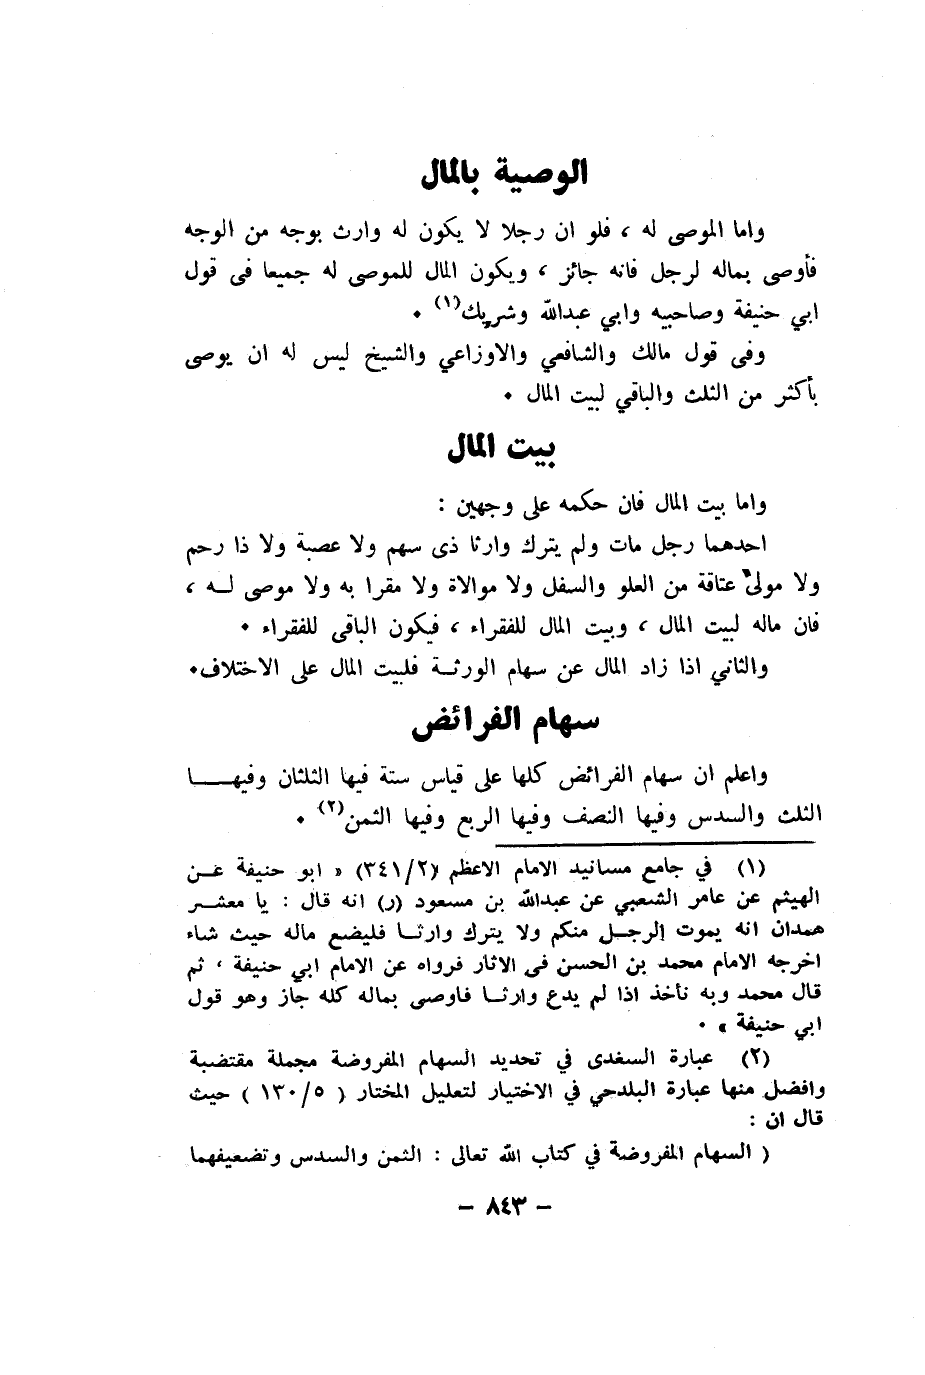 الوصية بالمال
واما الموصى له ، فلو ان رجلا لا يكون له وارث بوجه من الوجه
فأوصى بماله لرجل فانه جائز ، ويكون المال للموصى له جميعا فى قول
ابي حنيفة وصاحبيه وابي عبدالله وشريك(١) .
وفى قول مالك والشافعي والاوزاعي والشيخ ليس له ان يوصى
بأكثر من الثلث والباقي لبيت المال .
بيت المال
واما بيت المال فان حكمه على وجهين :
احدهما رجل مات ولم يترك وارثا ذى سهم ولا عصبة ولا ذا رحم
ولا مولى عتاقة من العلو والسفل ولا موالاة ولا مقرا به ولا موصى لـه ،
فان ماله لبيت المال ، وبيت المال للفقراء ، فيكون الباقى للفقراء .
والثاني اذا زاد المال عن سهام الورثـة فلبيت المال على الاختلاف.
سهام الفرائض
واعلم ان سهام الفرائض كلها على قياس ستة فيها الثلثان وفيهـــا
الثلث والسدس وفيها النصف وفيها الربع وفيها الثمن(٢) .
(١) في جامع مسانيد الامام الاعظم (٣٤١/٢) « ابو حنيفة عـن
الهيثم عن عامر الشعبي عن عبدالله بن مسعود (ر) انه قال : يا معشـر
همدان انه يموت الرجـل منكم ولا يترك وارثـا فليضع ماله حيث شاء
اخرجه الامام محمد بن الحسن فى الاثار فرواه عن الامام ابي حنيفة ، ثم
قال محمد وبه نأخذ اذا لم يدع وارثـا فاوصى بماله كله جاز وهو قول
ابي حنيفة » .
(٢) عبارة السغدى في تحديد السهام المفروضة مجملة مقتضبة
وافضل منها عبارة البلدحي في الاختيار لتعليل المختار ( ١٣٠/٥ ) حيث
قال ان :
( السهام المفروضة في كتاب الله تعالى : الثمن والسدس وتضعيفهما
– ٨٤٣ –